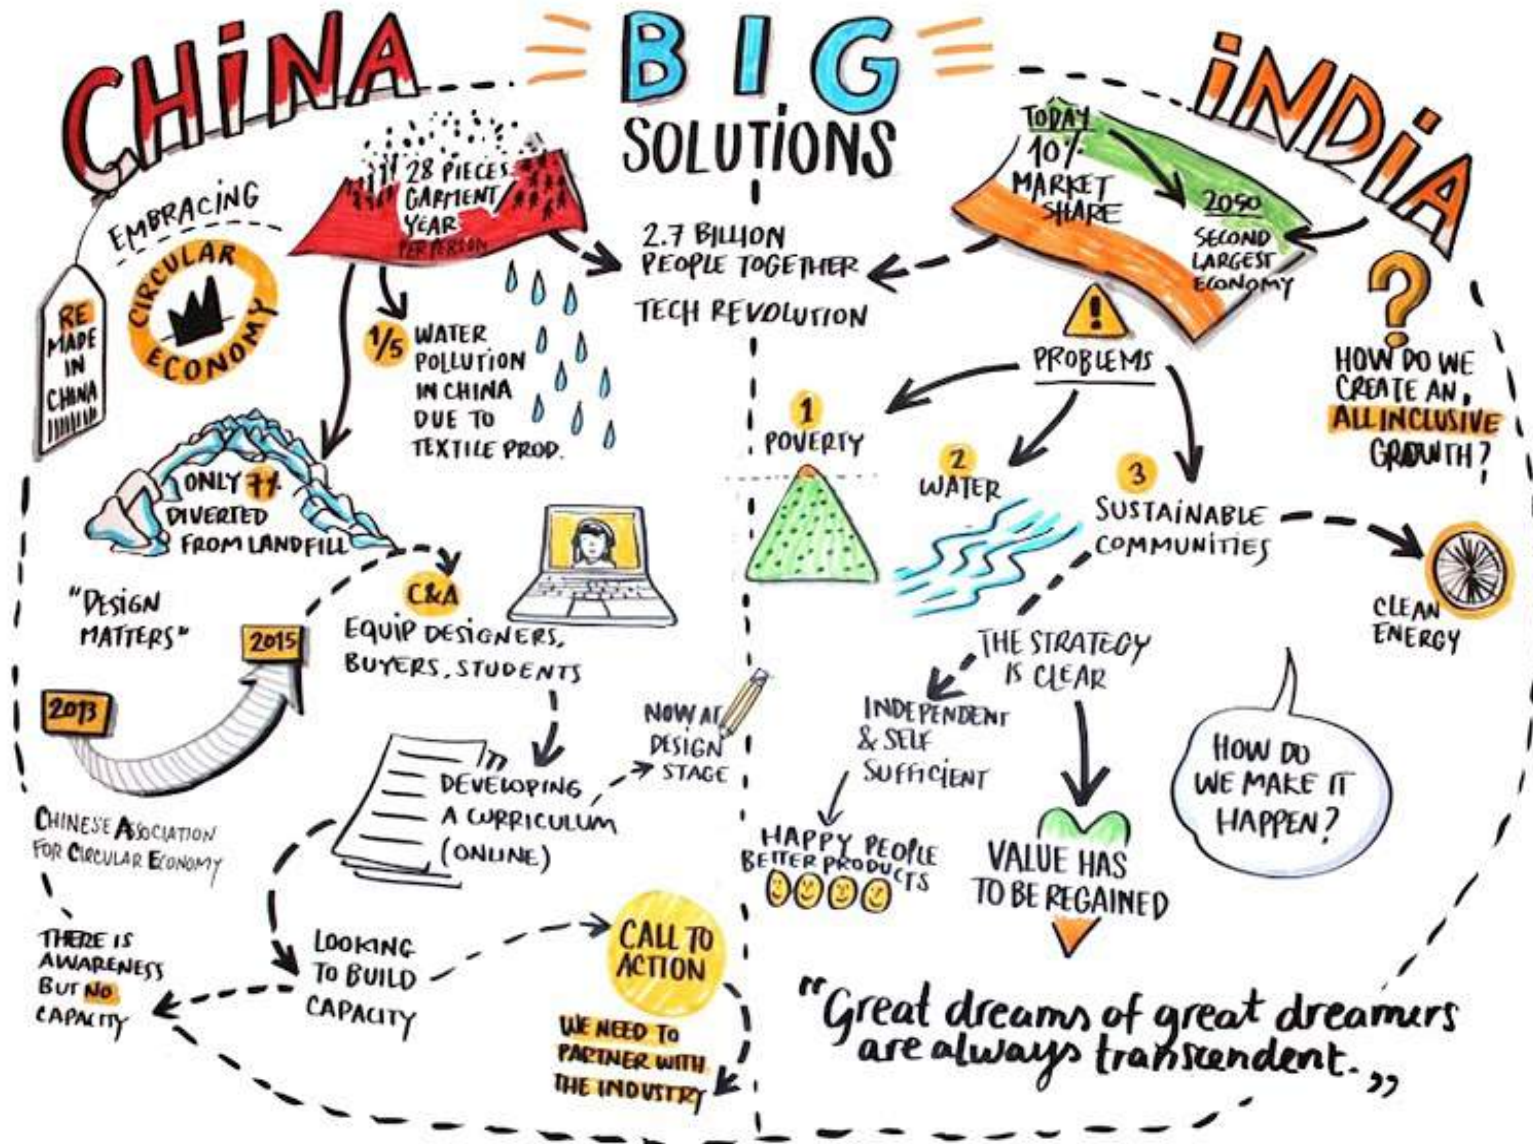 CHiNA
BIG
SOLUTiONS
iNDiA
EMBRACING
CIRCULAR
ECONOMY
RE
MADE
IN
CHINA
28 PIECES
GARMENT/
YEAR
PER PERSON
1/5
WATER
POLLUTION
IN CHINA
DUE TO
TEXTILE PROD.
ONLY 7%
DIVERTED
FROM LANDFILL
"DESIGN
MATTERS"
2013
2015
CHINESE ASSOCIATION
FOR CIRCULAR ECONOMY
C&A
EQUIP DESIGNERS,
BUYERS, STUDENTS
DEVELOPING
A CURRICULUM
(ONLINE)
NOW AT
DESIGN
STAGE
LOOKING
TO BUILD
CAPACITY
THERE IS
AWARENESS
BUT NO
CAPACITY
CALL TO
ACTION
WE NEED TO
PARTNER WITH
THE INDUSTRY
2.7 BILLION
PEOPLE TOGETHER
TECH REVOLUTION
TODAY
10%
MARKET
SHARE
2050
SECOND
LARGEST
ECONOMY
!
PROBLEMS
1
POVERTY
2
WATER
3
SUSTAINABLE
COMMUNITIES
?
HOW DO WE
CREATE AN
ALL INCLUSIVE
GROWTH?
CLEAN
ENERGY
THE STRATEGY
IS CLEAR
INDEPENDENT
& SELF
SUFFICIENT
HAPPY PEOPLE
BETTER PRODUCTS
VALUE HAS
TO BE REGAINED
HOW DO
WE MAKE IT
HAPPEN?
"Great dreams of great dreamers
are always transcendent."